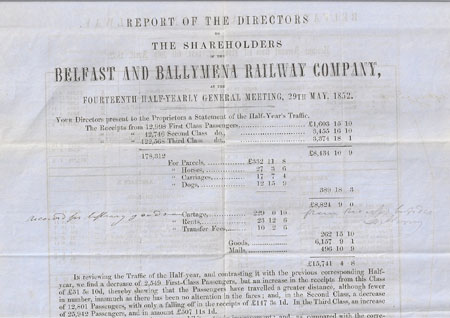 REPORT OF THE DIRECTORS
TO
THE SHAREHOLDERS
OF THE
BELFAST AND BALLYMENA RAILWAY COMPANY,
AT THE
FOURTEENTH HALF-YEARLY GENERAL MEETING, 29TH MAY, 1852.
YOUR Directors present to the Proprietors a Statement of the Half-Year's Traffic.
The Receipts from 12,998 First Class Passengers, £1,603 15 10
" 42,746 Second Class do, 3,455 16 10
" 122,568 Third Class do, 3,374 18 1
178,312 £8,434 10 9
For Parcels, £332 11 8
" Horses, 27 3 6
" Carriages, 17 7 4
" Dogs, 12 15 9
389 18 3
£8,824 9 0
received for Cartage, 229 6 10
" Rents, 23 12 6
" Transfer Fees, 10 2 6
262 15 10
Goods, 6,157 9 1
Mails, 496 10 9
£15,741 4 8
In reviewing the Traffic of the Half-year, and contrasting it with the previous corresponding Half-
year, we find a decrease of 2,549 First-Class Passengers, but an increase in the receipts from this Class
of £51 5s 10d, thereby shewing that the Passengers have travelled a greater distance, although fewer
in number, inasmuch as there has been no alteration in the fares; and, in the Second Class, a decrease
of 12,801 Passengers, with only a falling off in the receipts of £147 5s 1d. In the Third Class, an increase
of 25,942 Passengers, and in amount of £507 11s 1d.